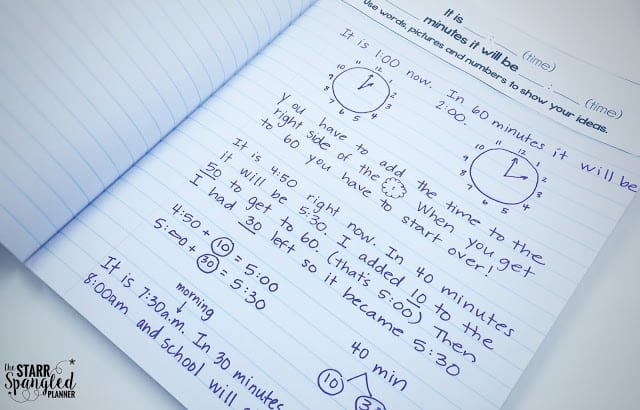 It is __:__ (time)
minutes it will be __:__ (time)
Use words, pictures and numbers to show your ideas.
It is 1:00 now. In 60 minutes it will be
2:00.
12 1 2 3 4 5 6 7 8 9 10 11
12 1 2 3 4 5 6 7 8 9 10 11
You have to add the time to the
right side of the : When you get
to 60 you have to start over!
It is 4:50 right now. In 40 minutes
it will be 5:30. I added 10 to the
50 to get to 60. (that's 5:00) Then
I had 30 left so it became 5:30
4:50 + 10 = 5:00
5:00 + 30 = 5:30
40 min
10 30
morning
It is 7:30 a.m. In 30 minutes
8:00am and school will
the STARR
Spangled
PLANNER